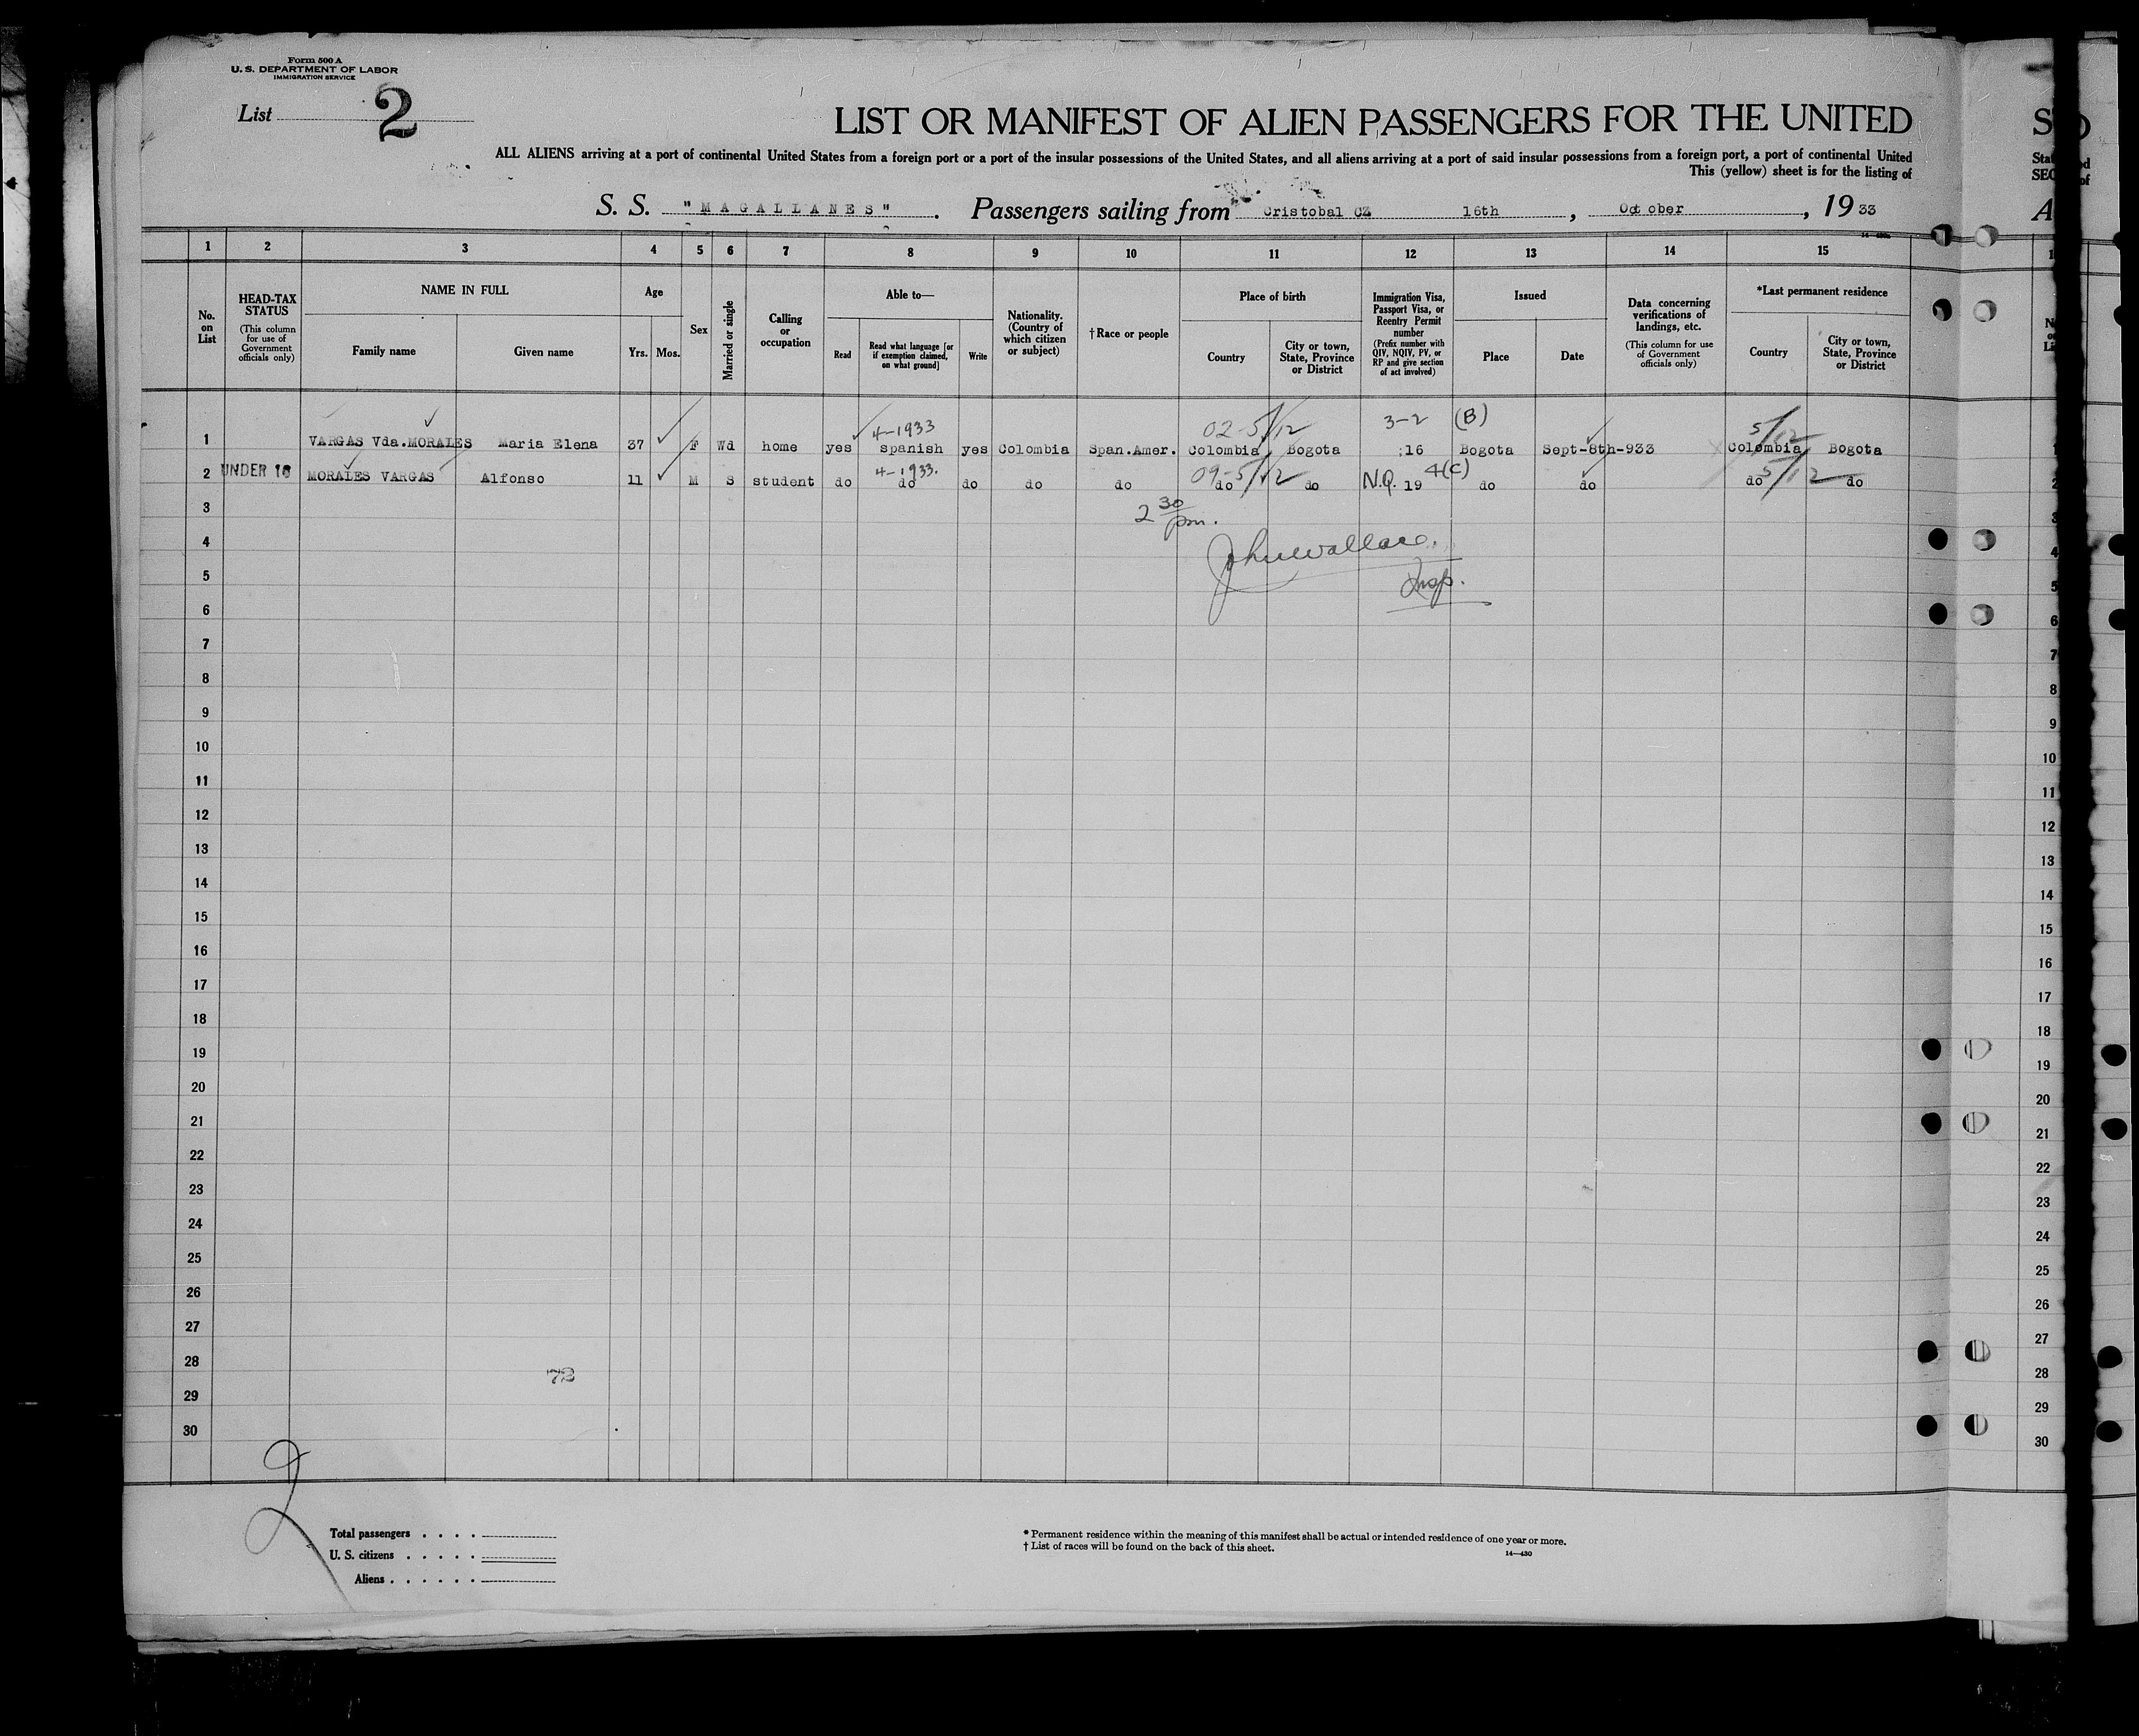 Form 500 A
U. S. DEPARTMENT OF LABOR
IMMIGRATION SERVICE
List 2
LIST OR MANIFEST OF ALIEN PASSENGERS FOR THE UNITED
ALL ALIENS arriving at a port of continental United States from a foreign port or a port of the insular possessions of the United States, and all aliens arriving at a port of said insular possessions from a foreign port, a port of continental United
This (yellow) sheet is for the listing of
S. S. "MAGALLANES". Passengers sailing from Cristobal CZ 16th, October, 1933
1 2 3 4 5 6 7 8 9 10 11 12 13 14 15
No. on List
HEAD-TAX STATUS
(This column for use of Government officials only)
NAME IN FULL
Family name Given name
Age
Yrs. Mos.
Sex
Married or single
Calling or occupation
Able to—
Read
Read what language [or if exemption claimed, on what ground]
Write
Nationality. (Country of which citizen or subject)
†Race or people
Place of birth
Country
City or town, State, Province or District
Immigration Visa, Passport Visa, or Reentry Permit number
(Prefix number with QIV, NQIV, PV, or RP and give section of act involved)
Issued
Place Date
Data concerning verifications of landings, etc.
(This column for use of Government officials only)
*Last permanent residence
Country
City or town, State, Province or District
4-1933 02-5/12 3-2 (B) 5/12
1 VARGAS Vda.MORALES Maria Elena 37 F Wd home yes spanish yes Colombia Span.Amer. Colombia Bogota 16 Bogota Sept-8th-933 Colombia Bogota
4-1933. 09-5/12 4(C) 5/12
2 UNDER 16 MORALES VARGAS Alfonso 11 M S student do do do do do do do N.Q. 19 do do do do
3
2 30 pm.
4
John Wallace.
5
Insp.
6
7
8
9
10
11
12
13
14
15
16
17
18
19
20
21
22
23
24
25
26
27
28
72
29
30
2
Total passengers
U. S. citizens
Aliens
* Permanent residence within the meaning of this manifest shall be actual or intended residence of one year or more.
† List of races will be found on the back of this sheet.
14—430